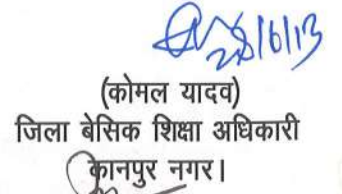 28/6/13
(कोमल यादव)
जिला बेसिक शिक्षा अधिकारी
कानपुर नगर।